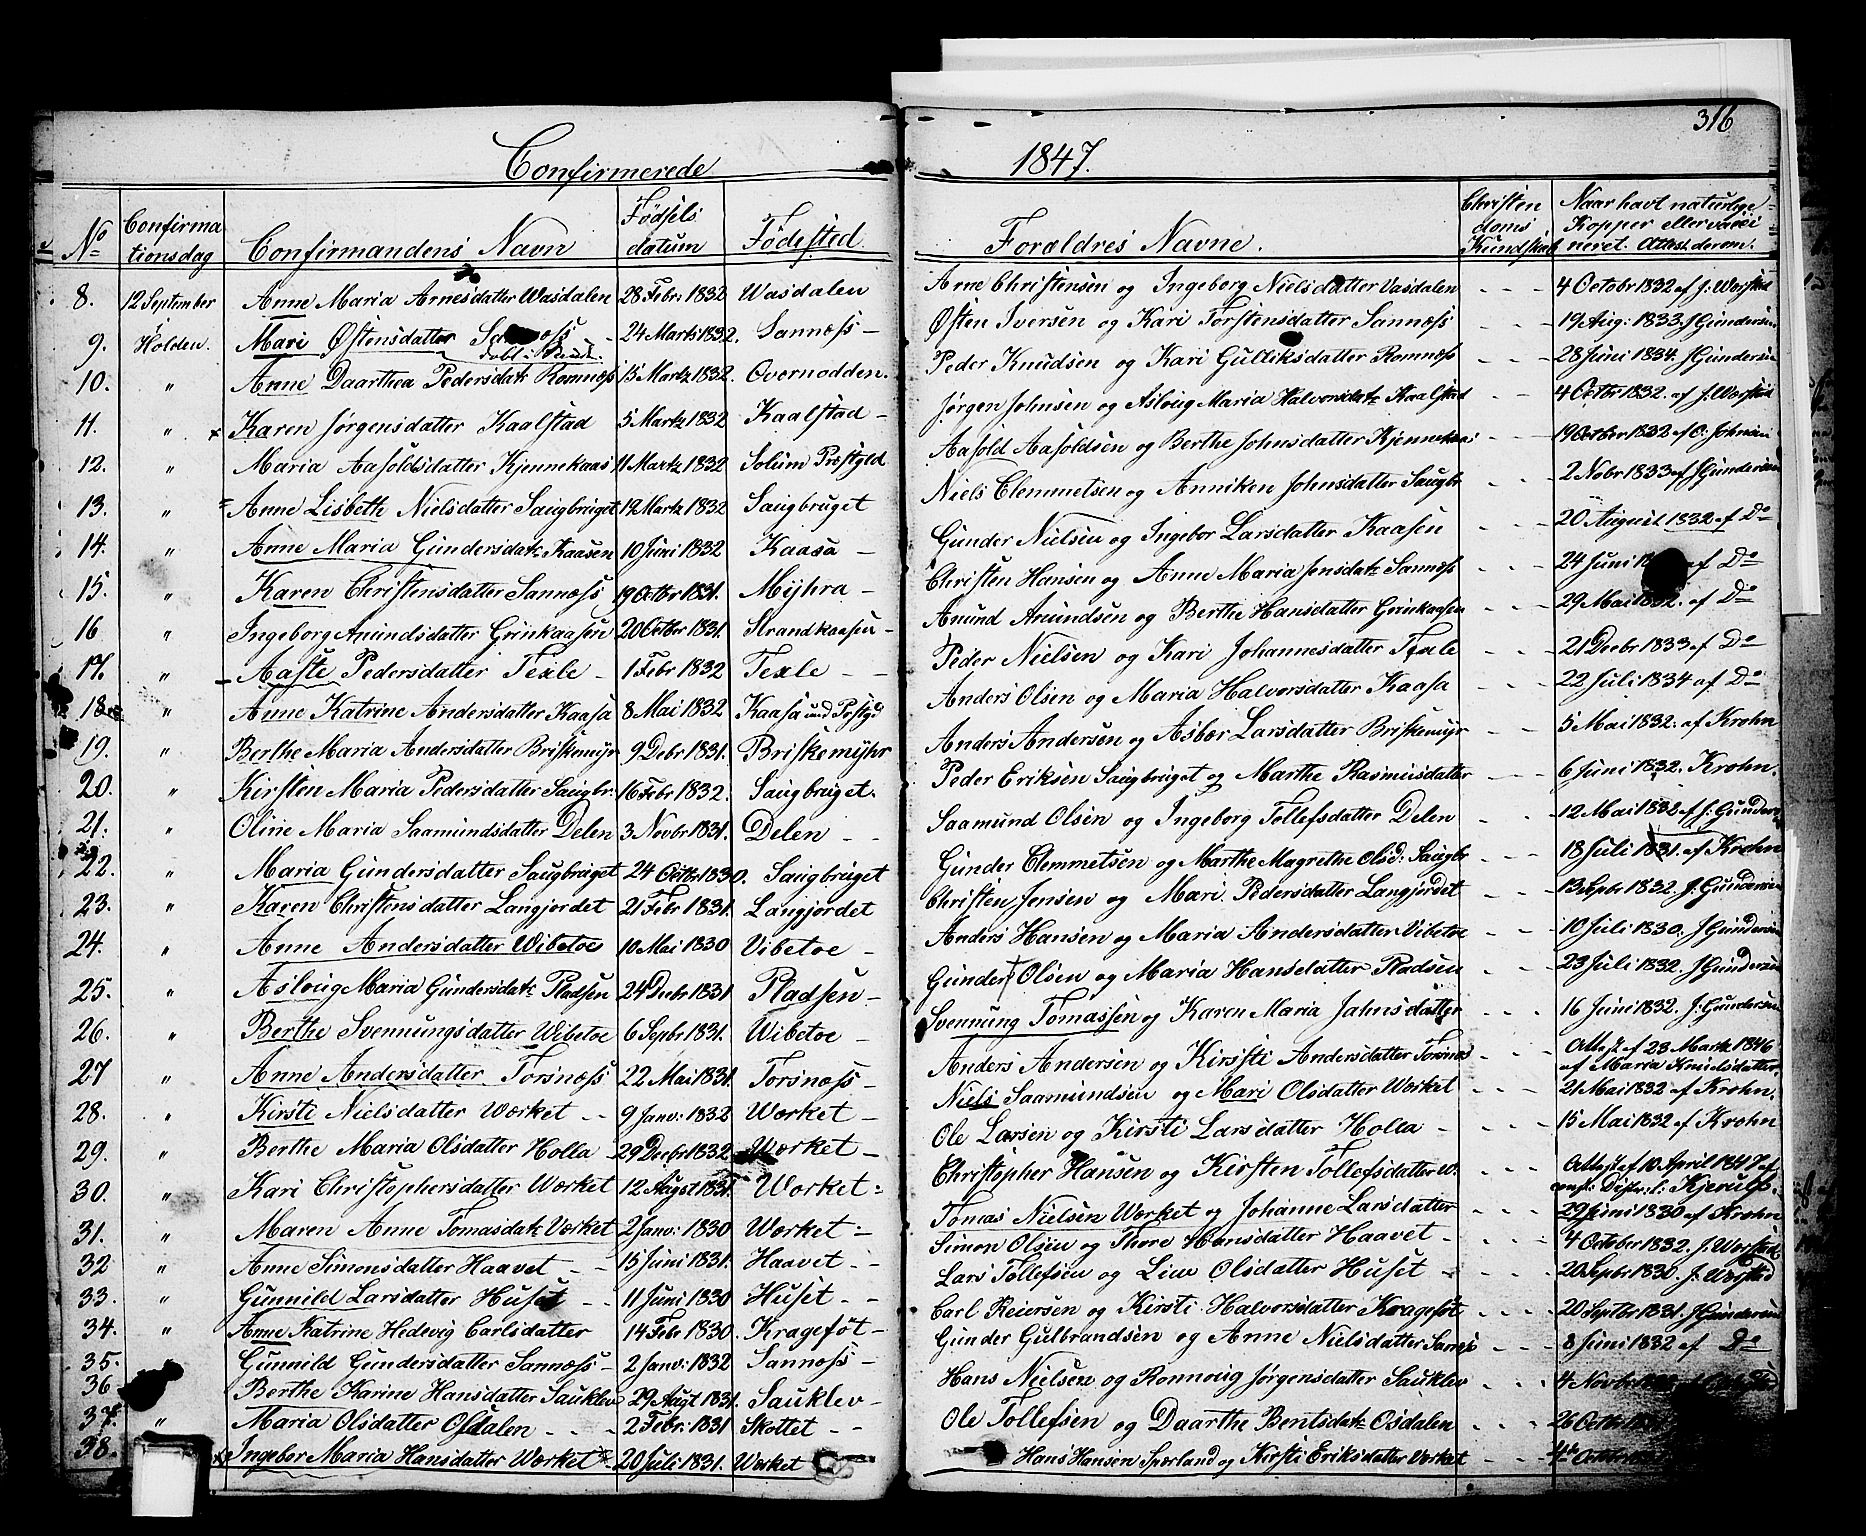 316
Confirmerede
1847.
No
Confirma
tionsdag
Confirmandens Navn
Fødsels
datum
Fødested
Forældres Navne.
Christen
doms
Kundskab
Naar havt naturlige
Kopper eller vacci
neret. Attest derom.
8. 12 September Anne Maria Arnesdatter Wasdalen 28 Febr: 1832 Wasdalen Arne Christensen og Ingeborg Nielsdatter Vasdalen - - - 4 Octobr 1832 af J: Worstad
9. Holden. Mari Østensdatter 24 Marts 1832. Sannæss - Østen Iversen og Kari Torstensdatter Sannæss - - - 19 Aug: 1833. J Gundersen
10. " Anne Daarthea Pedersdatr Romnæss 15 Martz 1832. Overnodden. Peder Knudsen og Kari Gulliksdatter Romnæss - - - 28 Juni 1834. J Gundersen
11. " Karen Jørgensdatter Kaalstad 5 Martz 1832 Kaalstad - Jørgen Johnsen og Asloug Maria Halvorsdatr Kaalstad - - - 4 Octbr 1832. af J. Worstad
12. " Maria Aasoldsdatter Kjennekaas 11 Martz 1832 Solum Præstgld Aasold Aasoldsen og Berthe Johnsdatter Kjennekaas - - - 19 Octbr 1832 af O. Johnsen
13. " Anne Lisbeth Nielsdatter Saugbruget 12 Martz 1832 Saugbruget Niels Clemmetsen og Anniken Johnsdatter Saugbr - - - 2 Nobr 1833 af J Gundersen
14. " Anne Maria Gundersdatr Kaasen 10 Juni 1832 Kaasa - Gunder Nielsen og Ingebor Larsdatter Kaasen - - - 20 August 1832 af Do
15. " Karen Christensdatter Sannæss 19 Octbr 1831. Myhra - Christen Hansen og Anne Maria Jensdatr Sannæss - - - 24 Juni af Do
16 " Ingeborg Anundsdatter Grinkaasen 20 Octbr 1831. Strandkaasen - Anund Anundsen og Berthe Hansdatter Grinkaasen - - - 29 Mai 1832. af Do
17. " Aaste Pedersdatter Texle - 1 Febr 1832 Texle - - Peder Nielsen og Kari Johannesdatter Texle - - - 21 Decbr 1833 af Do
18 " Anne Katrine Andersdatter Kaasa 8 Mai 1832 Kaasa Anders Olsen og Maria Halvorsdatter Kaasa - - - 22 Juli 1834 af Do
19. " Berthe Maria Andersdatter Briskemyr 9 Debr 1831. Briskemyhr Anders Andersen og Asbor Larsdatter Briskemyr - - - 5 Mai 1832. af Krohn
20. " Kirsten Maria Pedersdatter Saugbr. 16 Febr 1832. Saugbruget. Peder Eriksen Saugbruget og Marthe Rasmusdatter - - - 6 Juni 1832. Krohn.
21. " Oline Maria Saamundsdatter Delen 3 Novbr 1831. Delen - - Saamund Olsen og Ingeborg Tollefsdatter Delen - - - 12 Mai 1832 af J: Gunders
22. " Maria Gundersdatter Saugbruget 24 Octbr 1830. Saugbruget Gunder Clemmetsen og Marthe Magrethe Olsd: Saugbr - - - 18 Juli 1831. af Krohn
23. " Karen Christensdatter Langjordet 21 Febr 1831. Langjordet Christen Jensen og Mari Pedersdatter Langjordet - - - 13 Sepbr 1832. J. Gundersen
24. " Anne Andersdatter Wibetoe 10 Mai 1830 Vibetoe - Anders Hansen og Maria Andersdatter Vibetoe - - - 10 Juli 1830. J Gundersen
25. " Asloug Maria Gundersdatr Pladsen 24 Decbr 1831 Pladsen - Gunder Olsen og Maria Hansdatter Pladsen - - - 23 Juli 1832. J Gundersen
26. " Berthe Svennungsdatter Wibetoe 6 Sepbr 1831. Wibetoe - Svennung Tomassen og Karen Maria Jahnsdatter - - - 16 Juni 1832. J: Gundersen
27 " Anne Andersdatter Torsnæss 22 Mai 1831. Torsnæss - Anders Andersen og Kirsti Andersdatter Torsnæs - - - Attest af 23 Martz 1846
af Maria Knudsdatter.
28. " Kirsti Nielsdatter Wærket - - 9 Janv: 1832 Wærket - Niels Saamundsen og Mari Olsdatter Wærket - - - 21 Mai 1832 af Krohn.
29. " Berthe Maria Olsdatter Holla - 29 Decbr 1832 Wærket - Ole Larsen og Kirsti Larsdatter Holla - - - - 15 Mai 1832 af Krohn
30. " Kari Christophersdatter Værket 12 Augst 1831. Wærket - Christopher Hansen og Kirsten Tollefsdatter W. - - - Attest af 10 April 1847 af
const: Distr: l: Kjerulf.
31. " Maren Anne Tomasdatr Værket 2 Janv: 1830 Wærket - Tomas Nielsen Wærket og Johanne Larsdatter - - - 29 Juni 1830 af Krohn
32 " Anne Simonsdatter Haavet - - 15 Juni 1831. Haavet - - Simon Olsen og Thore Hansdatter Haavet - - - - 4 October 1832. J. Worstad
33. " Gunnild Larsdatter Huset - - 11 Juni 1830 Huset - - Lars Tollefsen og Live Olsdatter Huset - - - - 20 Sepbr 1830. J. Worstad
34. " Anne Katrine Hedevig Carlsdatter 14 Febr 1830. Kragefot - Carl Reiersen og Kirsti Halvorsdatter Kragefot - - - 20 Septbr 1831. J Gundersen
35. Gunnild Gundersdatter Sannæss - 2 Janv: 1832 Sannæss - Gunder Gulbrandsen og Anne Nielsdatter Sannæss - - - 8 Juni 1832 af Do
36 Berthe Karine Hansdatter Sauklev 29 Augt 1831. Sauklev - Hans Nielsen og Romnoug Jørgensdatter Sauklev - - - 4 Novbr
37. " Maria Olsdatter Osdalen - - - 2 Febr: 1831 Skottet - - Ole Tollefsen og Daarthe Bentsdatr Osdalen - - - 26 Octbr
38. Ingebor Maria Hansdatter Wærket 20 Juli 1831. Wærket Hans Hansen Sperland og Kirsti Eriksdatter Værket - - -